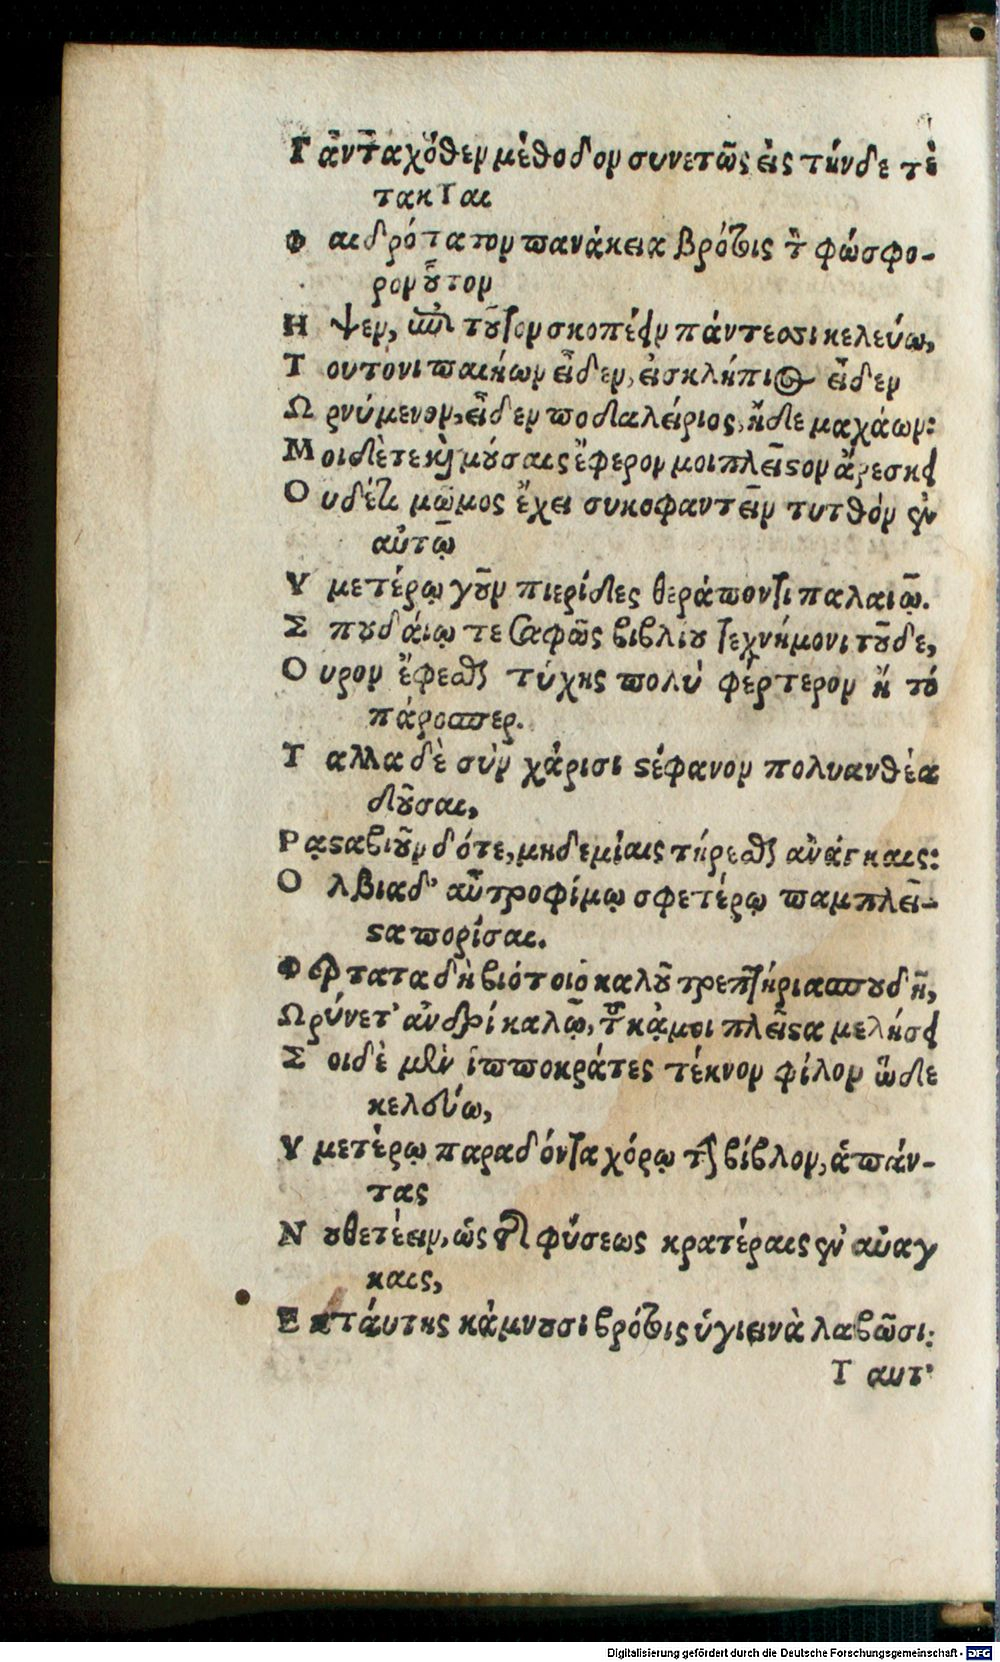 Γ ἀντ᾽αχόθεν μέθοδον συνετῶς εἰς τήνδε τέ
τακται
Φ αιδρότατον πανάκεια βρότοις ἢ φώσφο-
ρον οὗτον
Η ψεν, τοῦτον σκοπέειν πάντεσσι κελεύω,
Τ ουτονὶ παιήων εἶδεν, εἰσκλήπιος εἶδεν
Ω ρνύμενον, εἶδεν ποδαλείριος, ἤδε μαχάων:
Μ οι δὲ τε καὶ μούσαις ἔφερον μοι πλεῖστον ἄρεσκε
Ο υδέτι μῶμος ἔχει συκοφαντεῖν τυτθόν ἐν
αὐτῷ
Υ μετέρῳ γοῦν πιερίδες θεράποντι παλαιῷ.
Σ πουδαίῳ τε σαφῶς βιβλίου τεχνήμονι τοῦδε,
Ο υρον ἔφεσθε τύχης πολὺ φέρτερον ἢ τό
πάροσπερ.
Τ αλλα δὲ σὺν χάρισι στέφανον πολυανθέα
δοῦσαι,
Ρ ᾳστα βιοῦν δότε, μηδεμίαις τήρεσθε ἀνάγκαις:
Ο λβια δ᾽ αὖ τροφίμῳ σφετέρῳ παμπλεῖ-
στα πορίσαι.
Φ έρτατα δὴ βιότοιο καλοῦ τρεπτήρια σπουδῇ,
Ω ρύνετ᾽ ἀνδρί καλῷ, κᾀμοι πλεῖστα μελήσει
Σ οι δὲ μὲν ἱπποκράτες τέκνον φίλον ὧδε
κελεύω,
Υ μετέρῳ παραδόντα χόρῳ τήνδε βίβλον, ἁπάν-
τας
Ν ουθετέειν, ὡς φύσεως κρατέραις ἐν ἀναγ
καις,
Ε κ ταύτης κάμνουσι βρότοις ὑγιεινὰ λαβῶσι:
Τ αυτ᾽
Digitalisierung gefördert durch die Deutsche Forschungsgemeinschaft - DFG